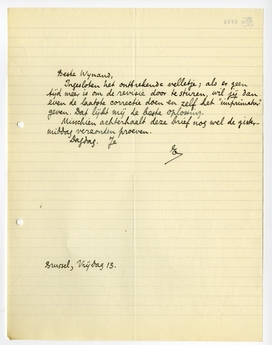 Beste Wynand,
Ingesloten het ontbrekende velletje; als er geen
tijd meer is om de revisie door te sturen, wil jij dan
even de laatste correctie doen en zelf het "imprimatur"
geven. Dat lijkt mij de beste oplossing.
Misschien achterhaalt deze brief nog wel de gister-
middag verzonden proeven.
Dag dag. Je
E
Brussel, Vrijdag 13.